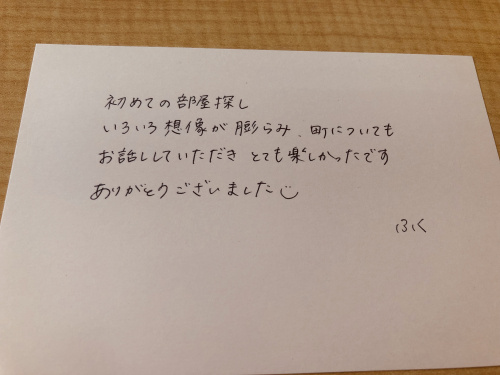 初めての部屋探し
いろいろ想像が膨らみ、町についても
お話ししていただき とても楽しかったです
ありがとうございました
ふく